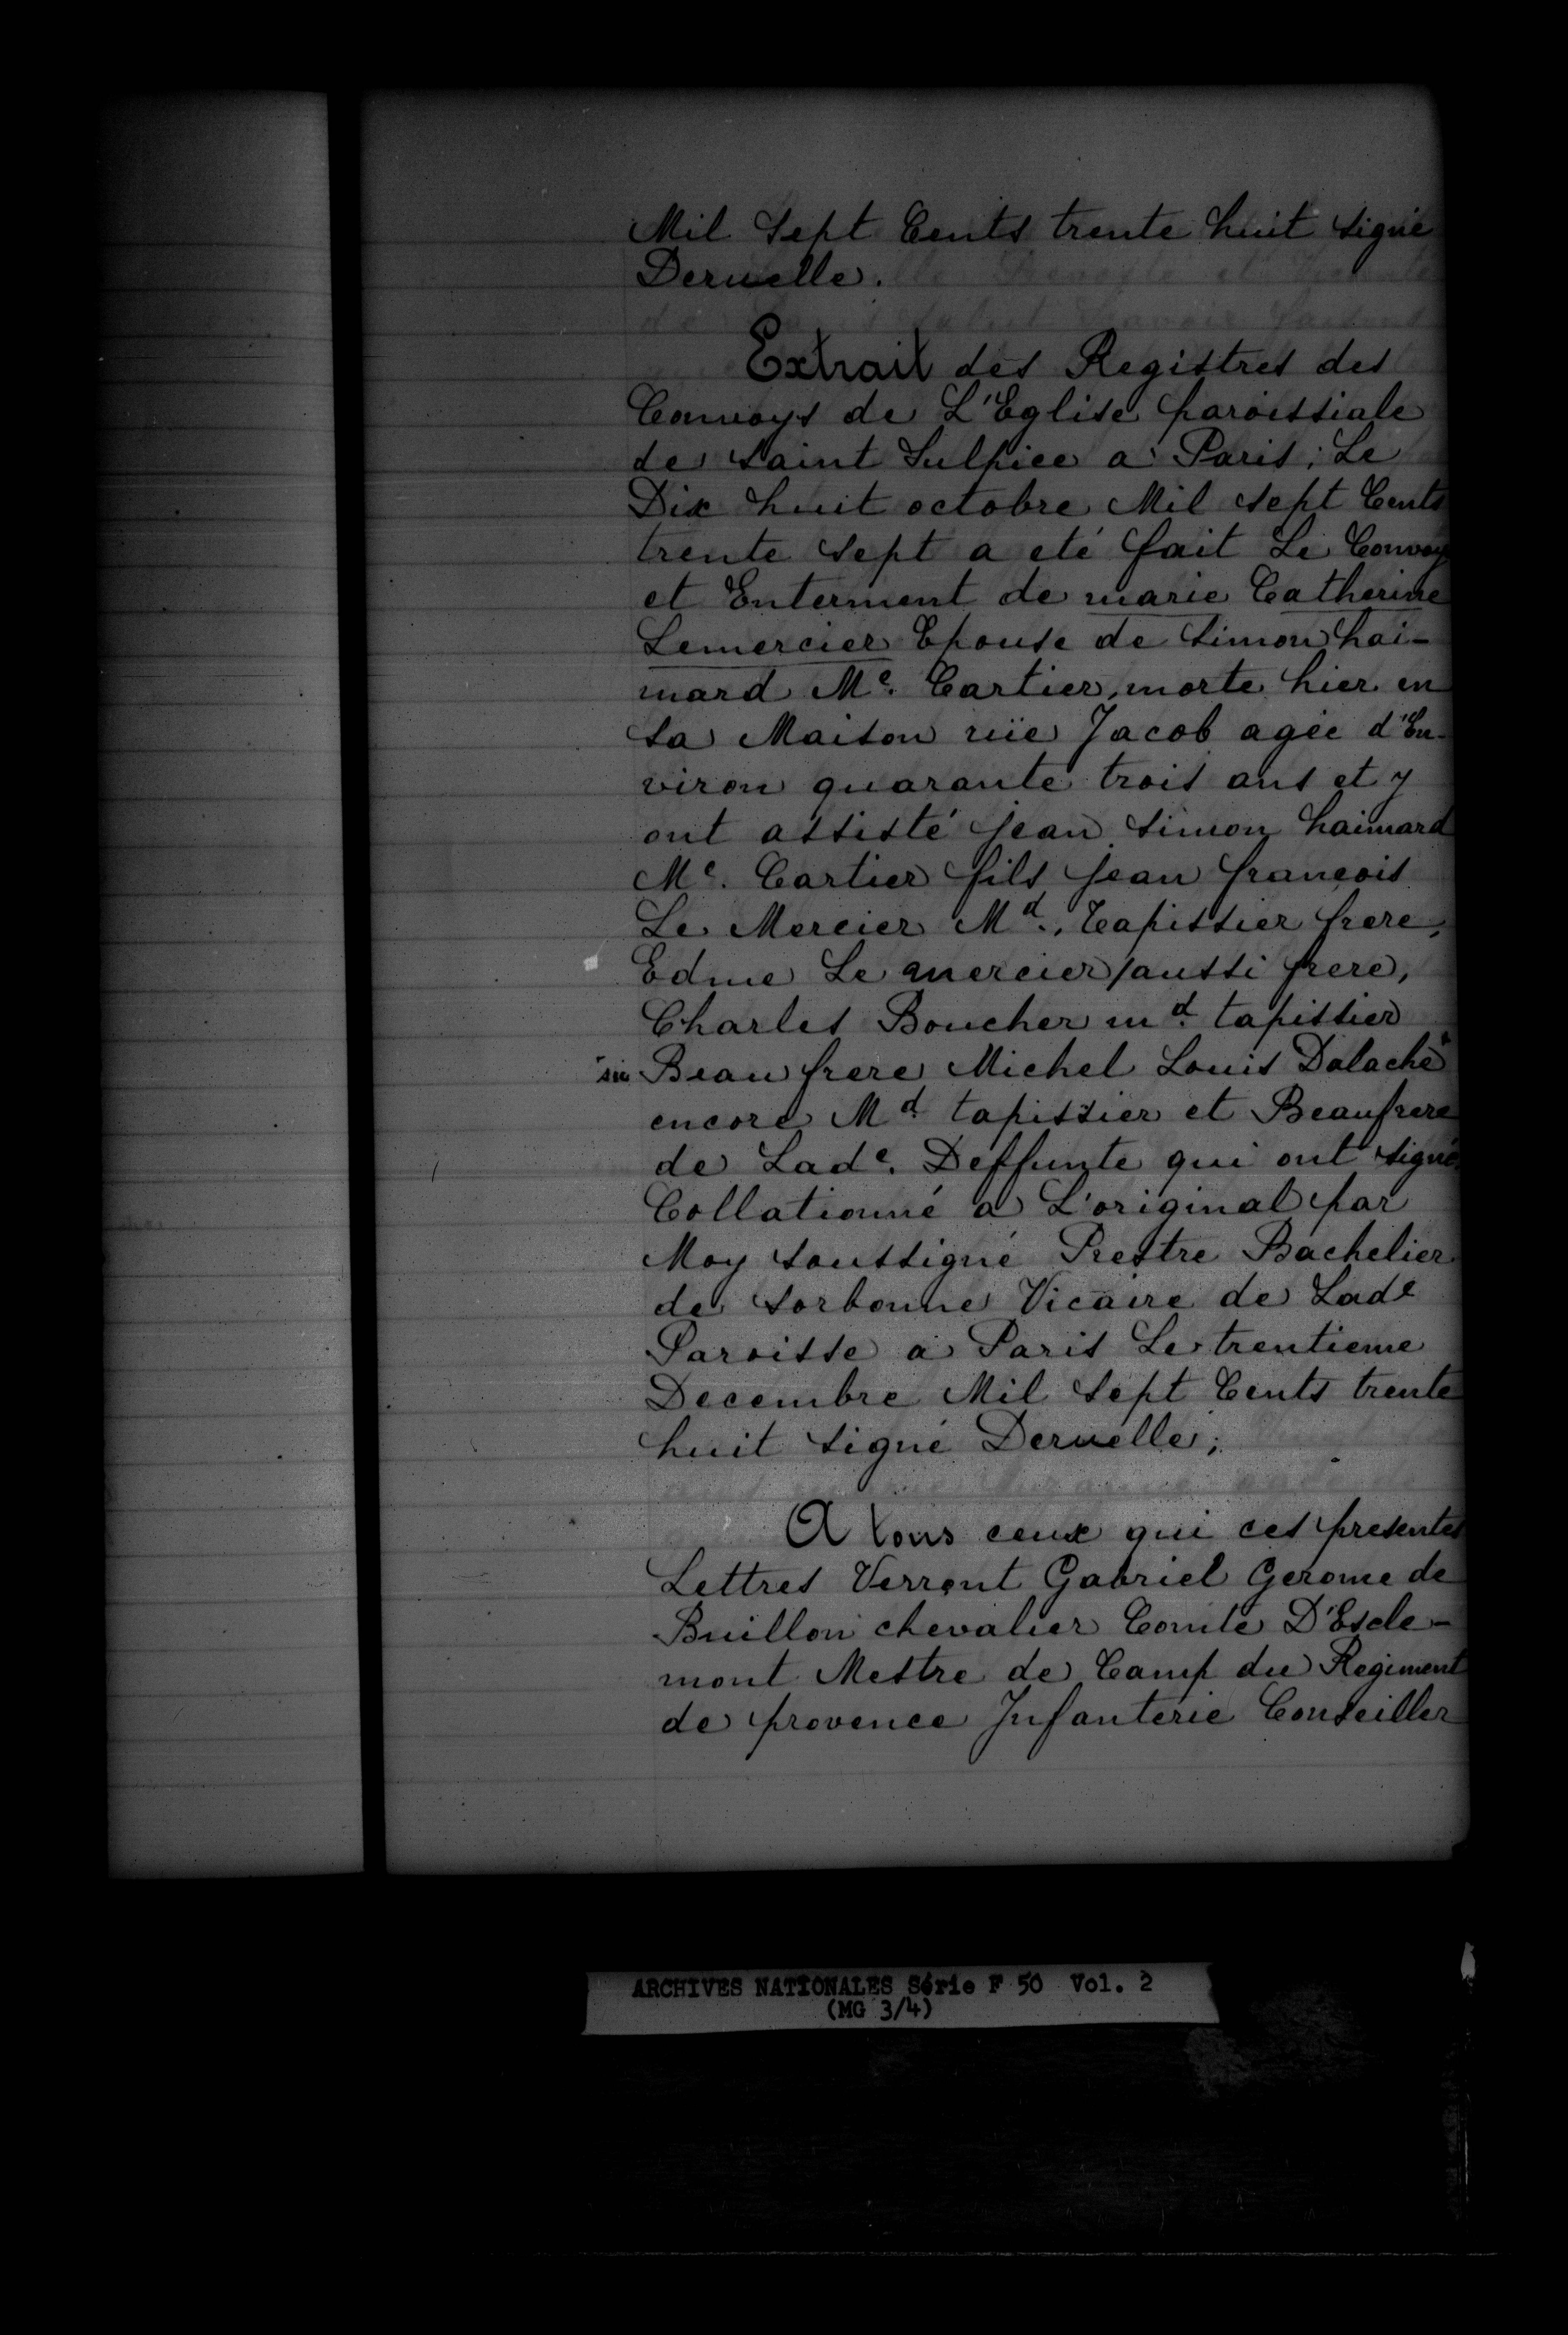 Mil Sept Cents trente huit signé
Deruelle.
Extrait des Registres des
Convoys de L'Eglise paroissiale
de Saint Sulpice a Paris; Le
Dix huit octobre Mil Sept Cents
trente Sept a eté fait Le Convoy
et Enterment de marie Catherine
Lemercier Epouse de Simon hai-
mard Me. Cartier, morte hier en
Sa Maison rüe Jacob agée d'En-
viron quarante trois ans et y
ont assisté jean Simon haimard
Me. Cartier fils jean françois
Le Mercier Md. Tapissier frere,
Edme Le mercier aussi frere,
Charles Boucher md. tapissier
Beau frere Michel Louis Dalaché*
encore Md. tapissier et Beaufrere
de Lade. Deffunte qui ont signé
Collationné a L'original par
Moy soussigné Prestre Bachelier
de Sorbonne Vicaire de Lade
Paroisse a Paris Le trentieme
Decembre Mil Sept Cents trente
huit signé Deruelle;
A tous ceux qui ces presentes
Lettres Verront Gabriel Gerome de
Buillon chevalier Comte D'Escle-
mont Mestre de Camp du Regiment
de provence Infanterie Conseiller
ARCHIVES NATIONALES Série F 50 Vol. 2
(MG 3/4)